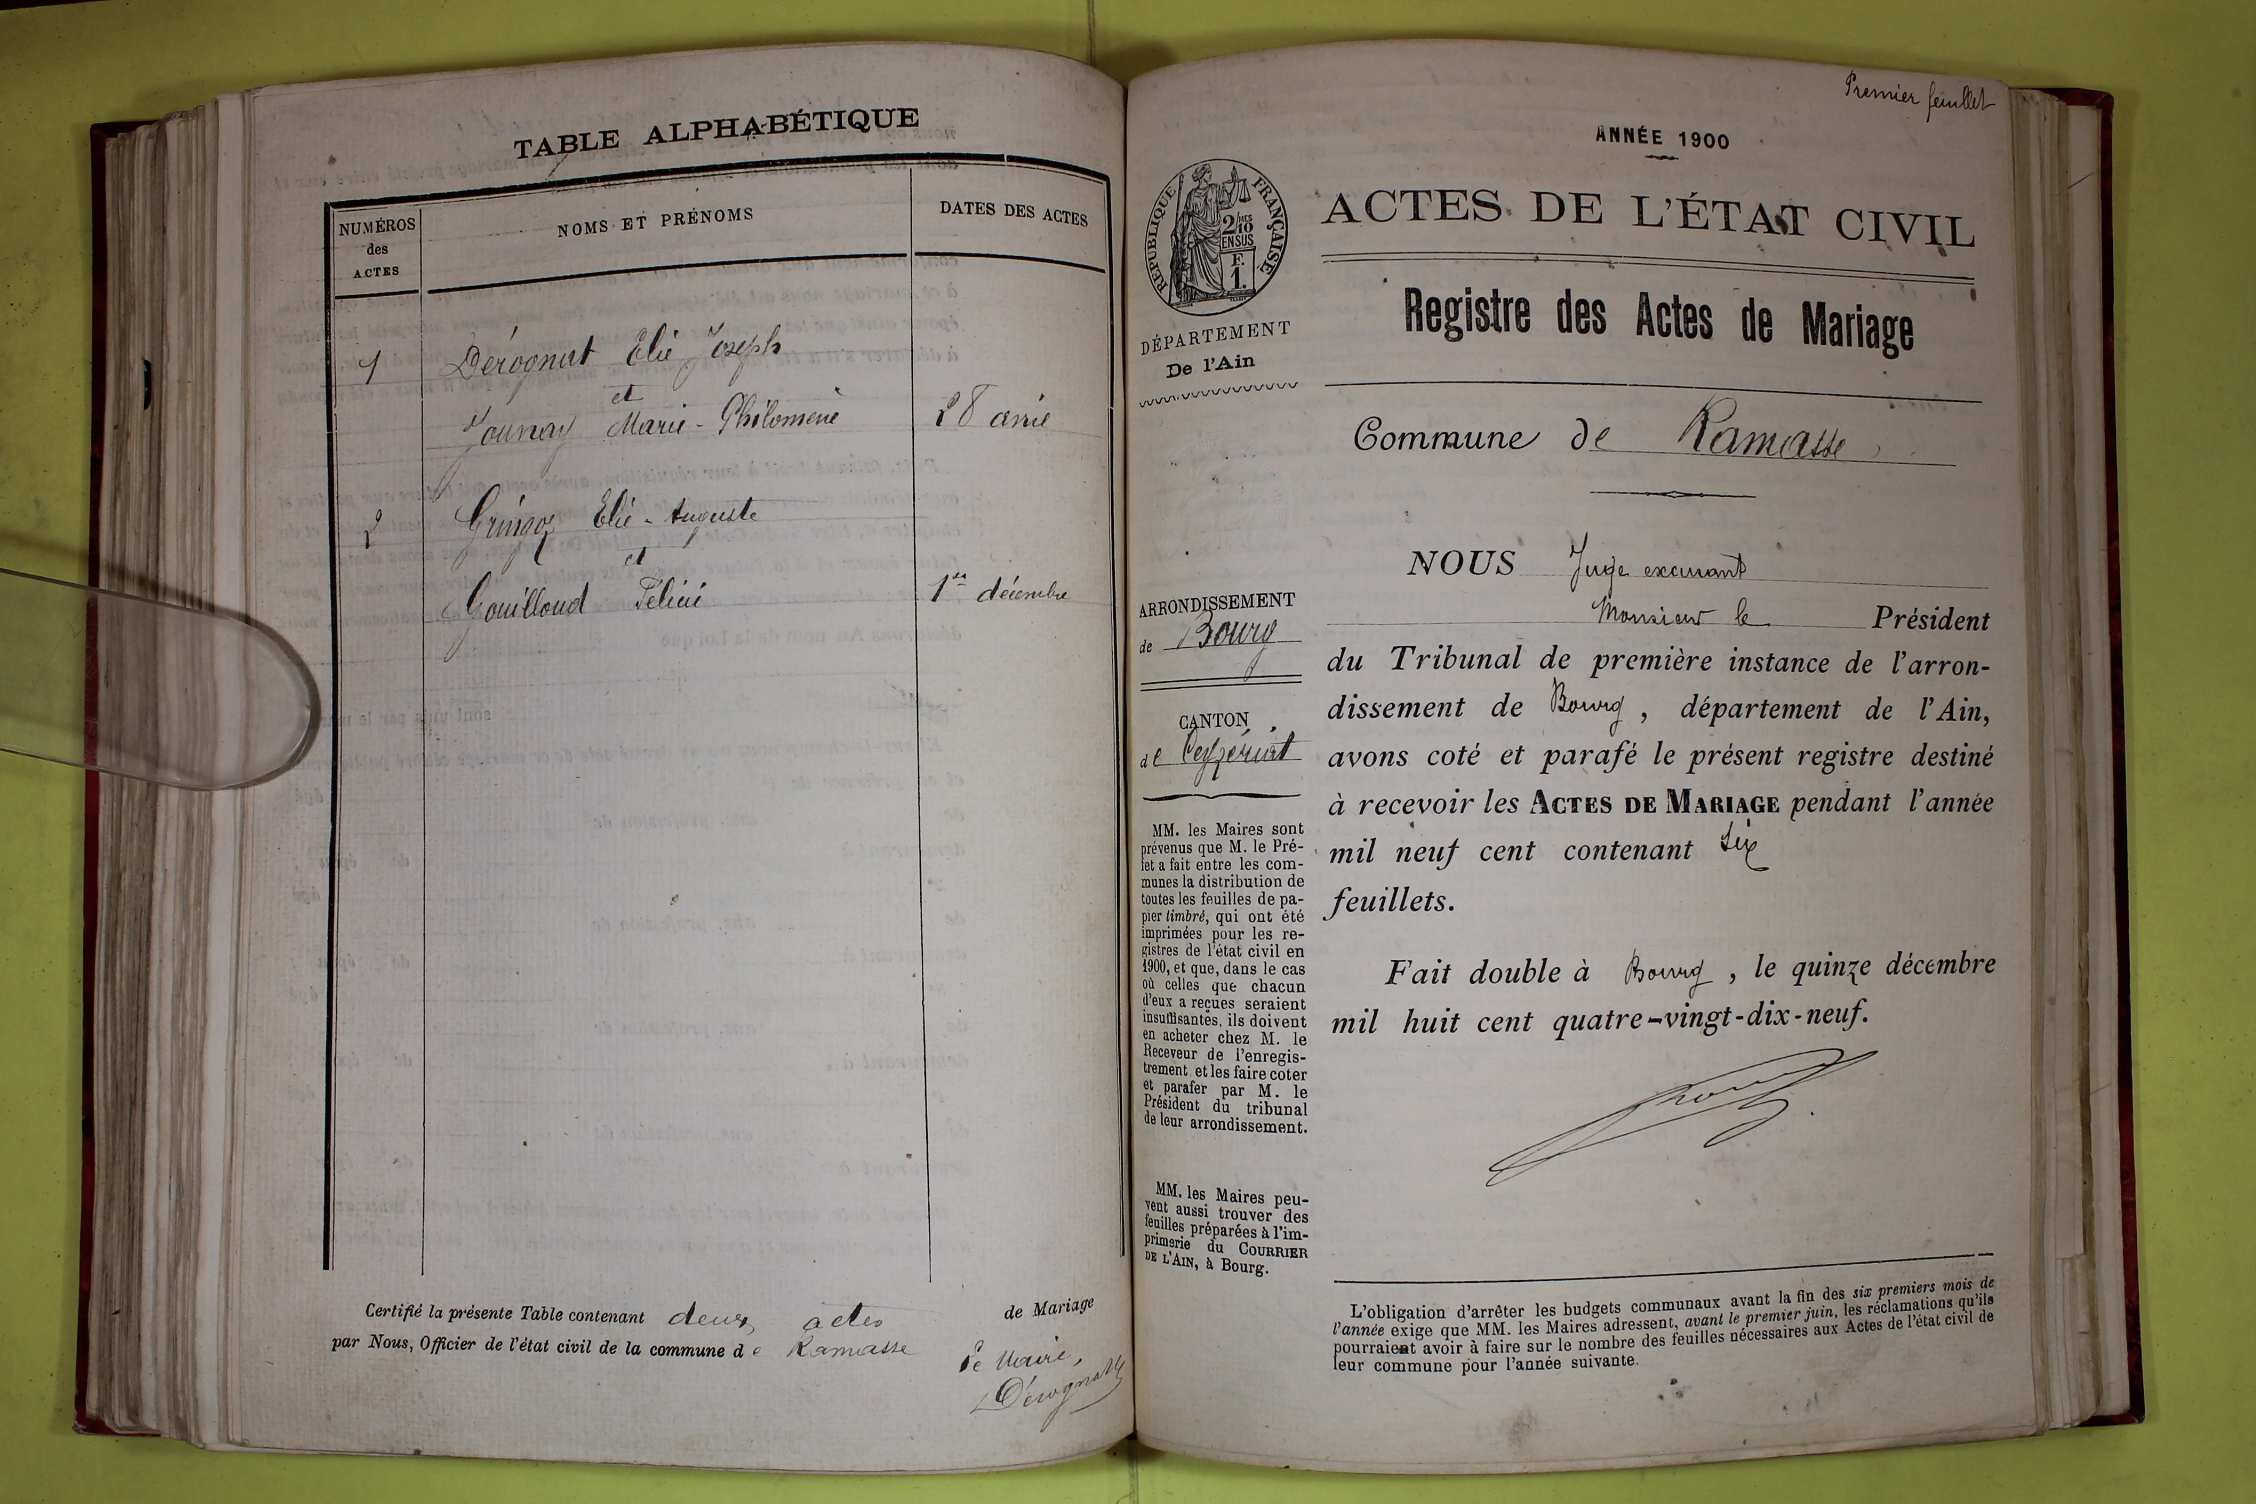 TABLE ALPHABÉTIQUE
NUMÉROS
des
ACTES
NOMS ET PRÉNOMS
DATES DES ACTES
1 Dérognat Elie Joseph
et
Journay Marie-Philomène 28
2 Gringoz Elie-Auguste
et
Gouilloud Félicie 1er décembre
Certifié la présente Table contenant deux actes de Mariage
par Nous, Officier de l'état civil de la commune de Ramasse
Le Maire,
Dérognat
Premier feuillet
ANNÉE 1900
RÉPUBLIQUE FRANÇAISE
2/10 MES
EN SUS
F.
1.
DÉPARTEMENT
De l'Ain
ARRONDISSEMENT
de Bourg
CANTON
de Ceyzériat
MM. les Maires sont
prévenus que M. le Pré-
fet a fait entre les com-
munes la distribution de
toutes les feuilles de pa-
pier timbré, qui ont été
imprimées pour les re-
gistres de l'état civil en
1900, et que, dans le cas
où celles que chacun
d'eux a reçues seraient
insuffisantes, ils doivent
en acheter chez M. le
Receveur de l'enregis-
trement et les faire coter
et parafer par M. le
Président du tribunal
de leur arrondissement.
MM. les Maires peu-
vent aussi trouver des
feuilles préparées à l'im-
primerie du COURRIER
DE L'AIN, à Bourg.
ACTES DE L'ÉTAT CIVIL
Registre des Actes de Mariage
Commune de Ramasse
NOUS Juge
Monsieur le Président
du Tribunal de première instance de l'arron-
dissement de Bourg, département de l'Ain,
avons coté et parafé le présent registre destiné
à recevoir les ACTES DE MARIAGE pendant l'année
mil neuf cent contenant six
feuillets.
Fait double à Bourg, le quinze décembre
mil huit cent quatre-vingt-dix-neuf.
L'obligation d'arrêter les budgets communaux avant la fin des six premiers mois de
l'année exige que MM. les Maires adressent, avant le premier juin, les réclamations qu'ils
pourraient avoir à faire sur le nombre des feuilles nécessaires aux Actes de l'état civil de
leur commune pour l'année suivante.